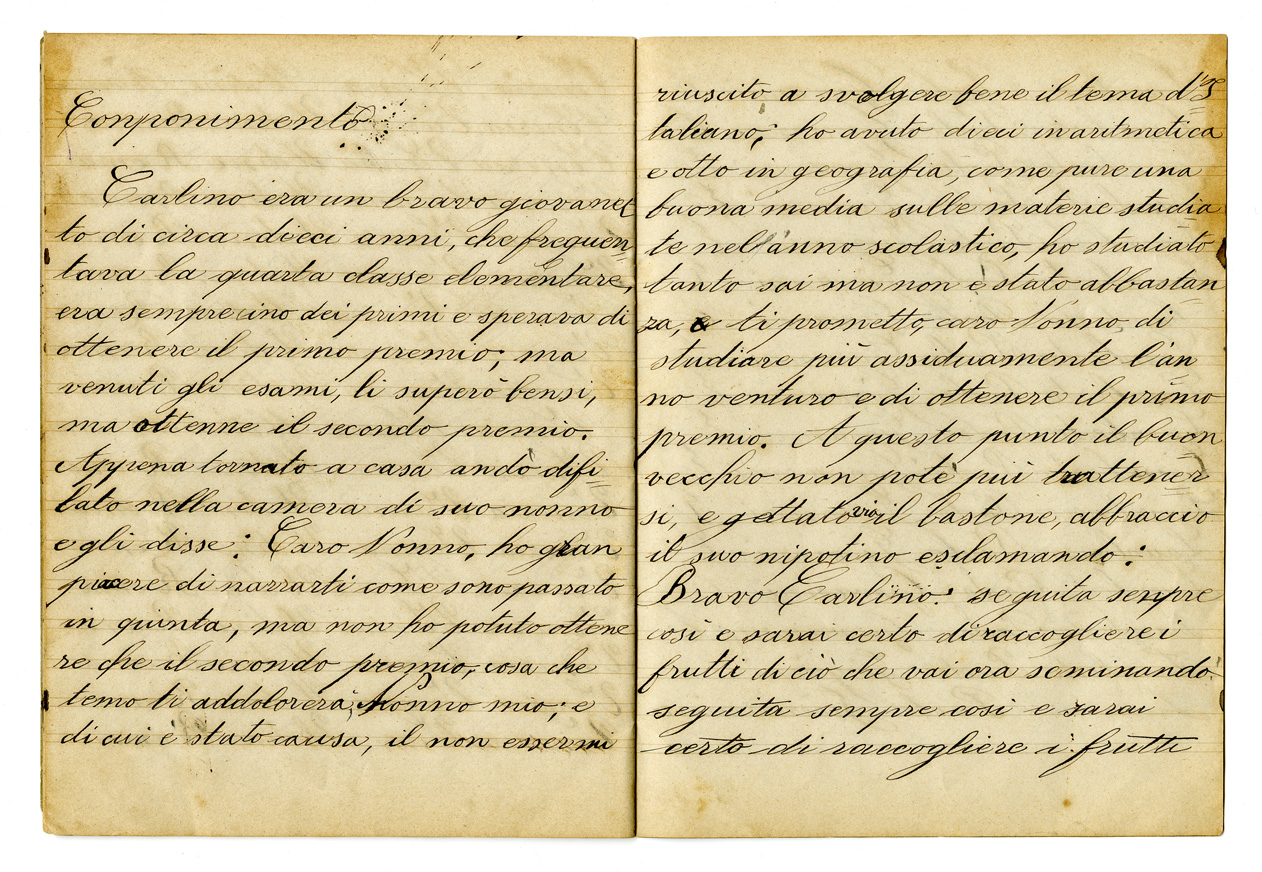 Conponimento
Carlino era un bravo giovanet
to di circa dieci anni, che frequen
tava la quarta classe elementare,
era sempre uno dei primi e sperava di
ottenere il primo premio; ma
venuti gli esami, li superò bensi,
ma ottenne il secondo premio.
Appena tornato a casa andò difi
lato nella camera di suo nonno
e gli disse: Caro Nonno, ho gran
piacere di narrarti come sono passato
in quinta, ma non ho potuto ottene
re che il secondo premio, cosa che
temo ti addolorerà, Nonno mio; e
di cui è stato causa, il non essermi
riuscito a svolgere bene il tema d'I
taliano; ho avuto dieci in aritmetica
e otto in geografia, come pure una
buona media sulle materie studia
te nell'anno scolastico, ho studiato
tanto sai ma non è stato abbastan
za, e ti prometto, caro Nonno, di
studiare più assiduamente l'an
no venturo e di ottenere il primo
premio. A questo punto il buon
vecchio non potè più trattener
si, e gettato via il bastone, abbracciò
il suo nipotino esclamando:
Bravo Carlino! seguita senpre
così e sarai certo di raccogliere i
frutti di ciò che vai ora seminando!
seguita sempre così e sarai
certo di raccogliere i frutti